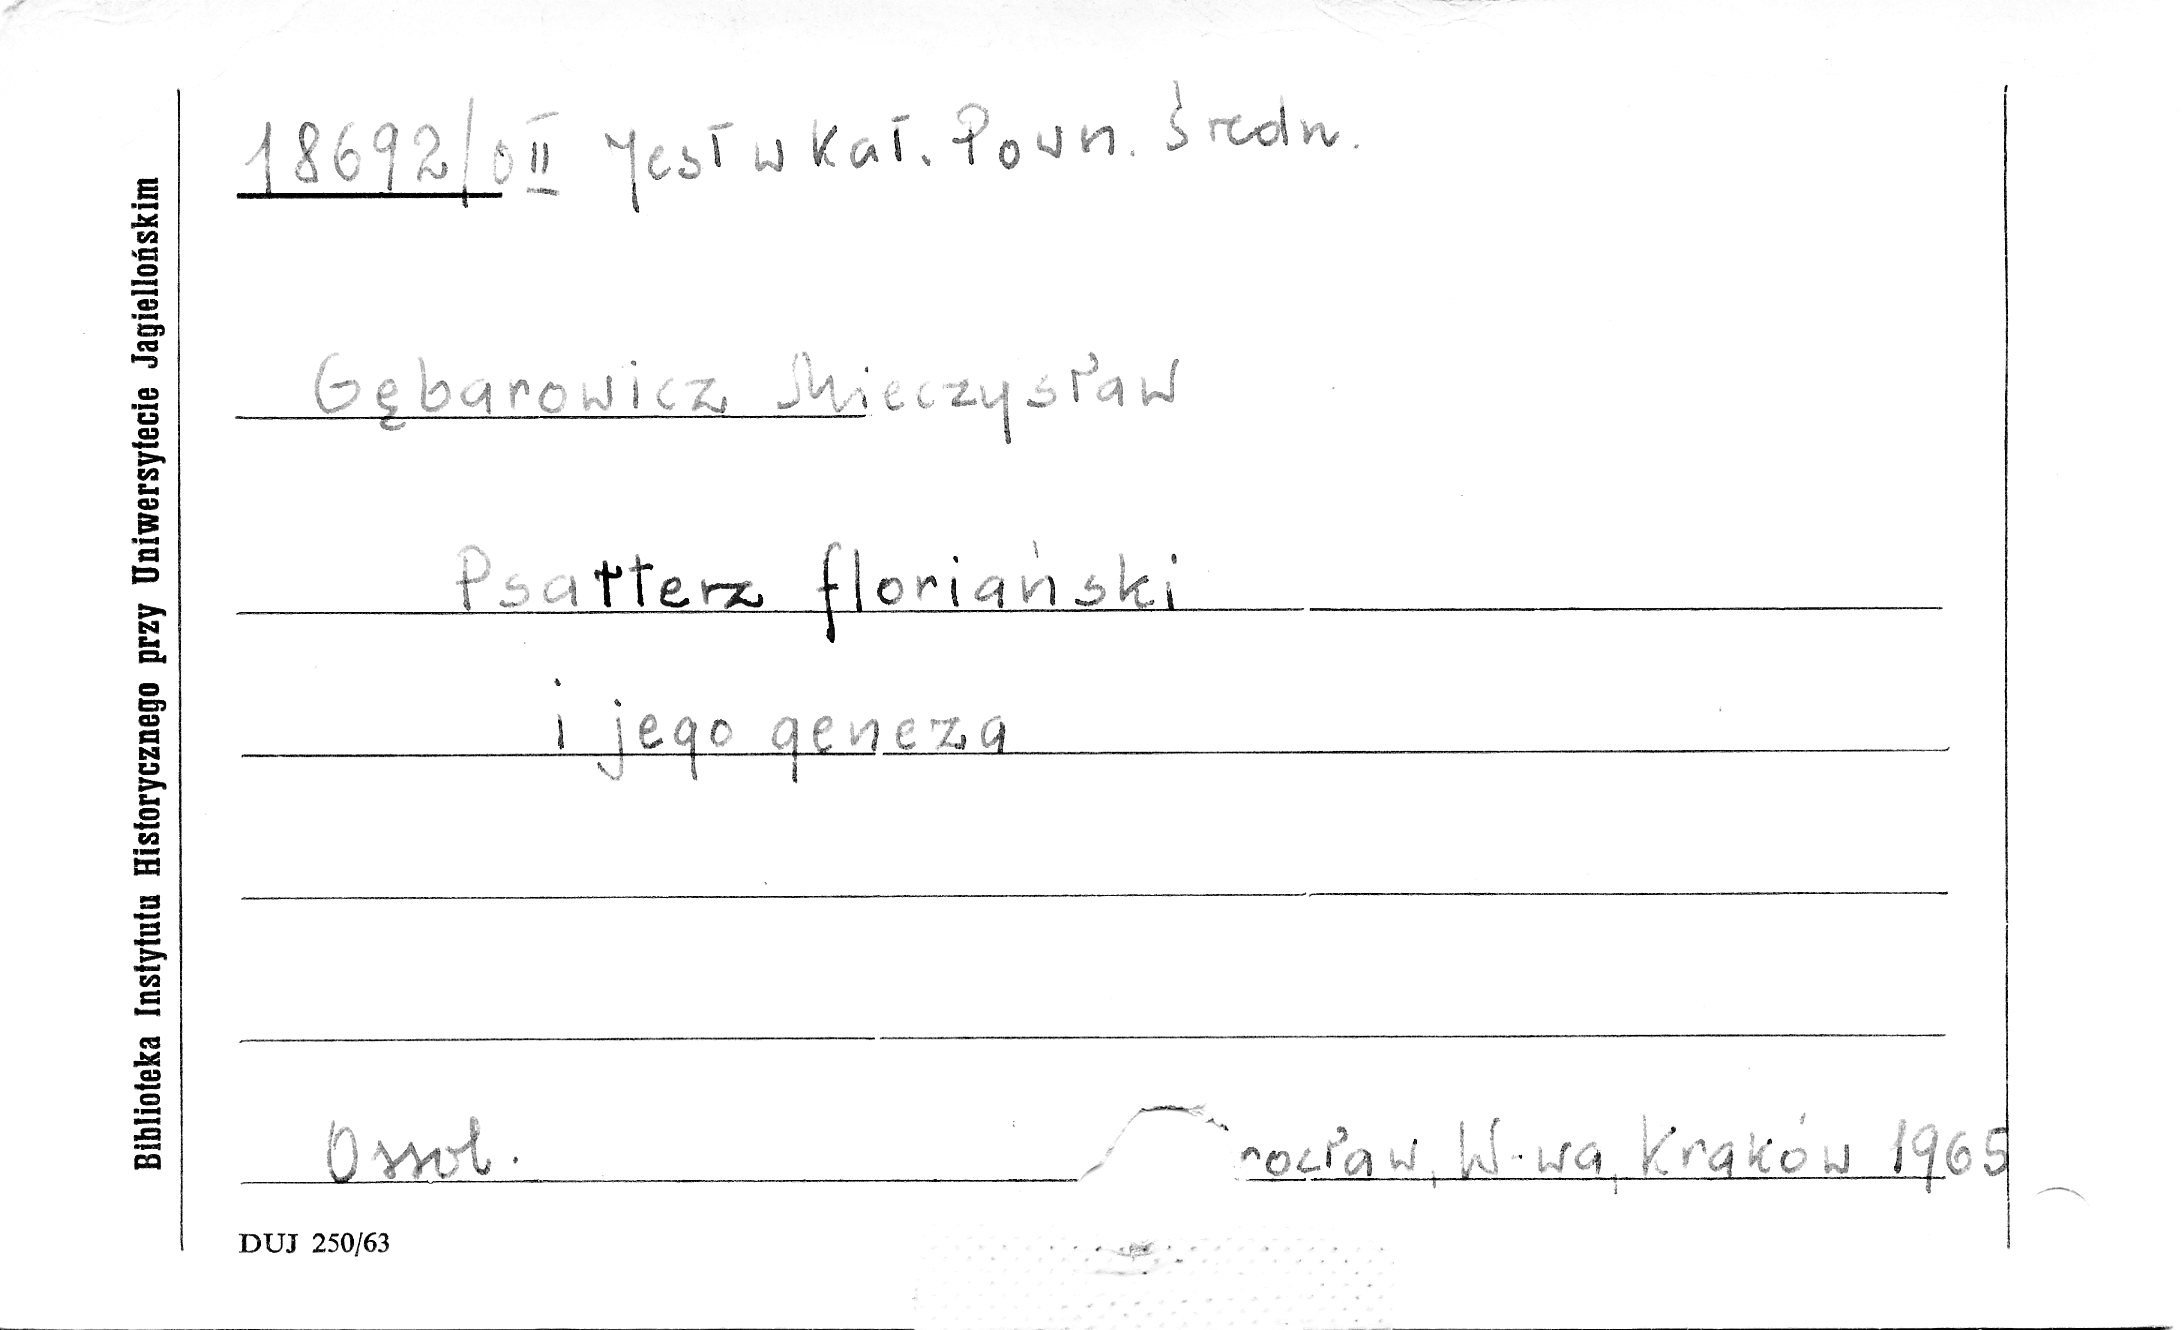 18692/o II Jest w Kat. Pown. Średn.
Gębarowicz Mieczysław
Psałterz floriański
i jego geneza
Ossol. rocław, W-wa, Kraków 1965
DUJ 250/63
Biblioteka Instytutu Historycznego przy Uniwersytecie Jagiellońskim